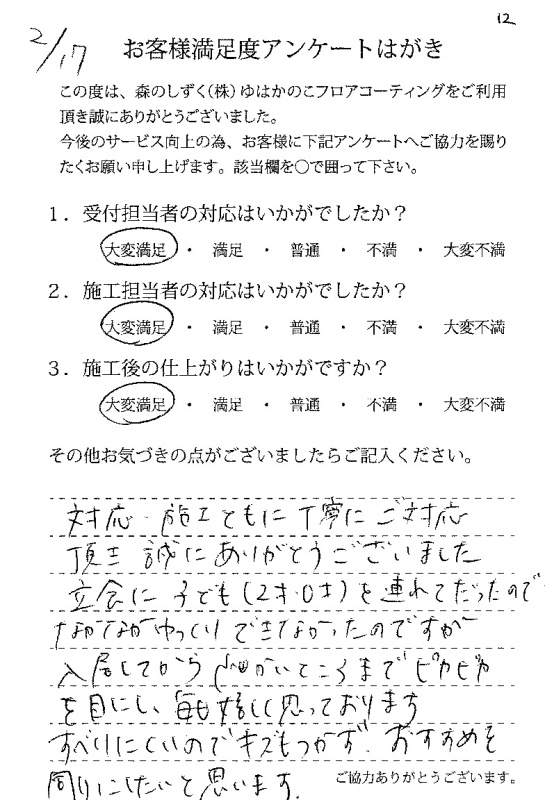 12
2/17
お客様満足度アンケートはがき
この度は、森のしずく(株)ゆはかのこフロアコーティングをご利用
頂き誠にありがとうございました。
今後のサービス向上の為、お客様に下記アンケートへご協力を賜り
たくお願い申し上げます。該当欄を〇で囲って下さい。
1. 受付担当者の対応はいかがでしたか？
大変満足 ・ 満足 ・ 普通 ・ 不満 ・ 大変不満
2. 施工担当者の対応はいかがでしたか？
大変満足 ・ 満足 ・ 普通 ・ 不満 ・ 大変不満
3. 施工後の仕上がりはいかがですか？
大変満足 ・ 満足 ・ 普通 ・ 不満 ・ 大変不満
その他お気づきの点がございましたらご記入ください。
対応・施工ともに丁寧にご対応
頂き 誠にありがとうございました
立会に 子ども(2才・0才)を連れてだったので
なかなかゆっくりできなかったのですが
入居してから 細かいところまでピカピカ
を目にし、毎日嬉しく思っております
すべりにくいのでキズもつかず、おすすめを
周りにしたいと思います。
ご協力ありがとうございます。